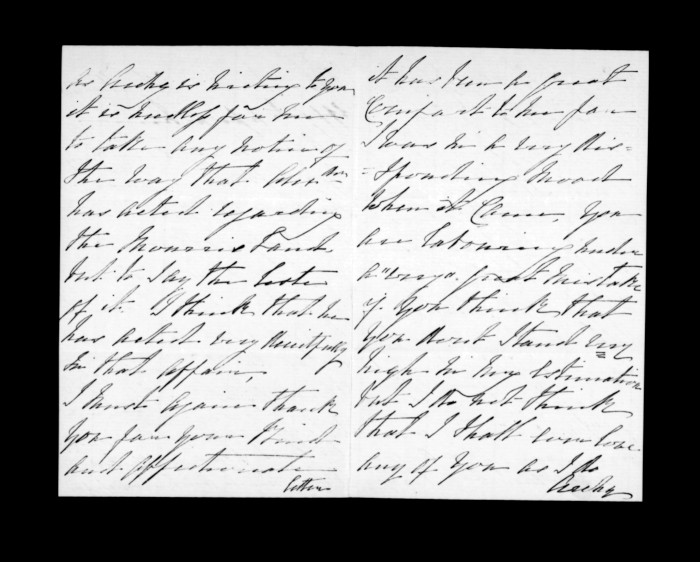 As Archy is writing to you
it is needless for me
to take any notice of
the way that Alexdr
has acted regarding
the Monsons Land
but to say the least
of it. I think that he
has acted very deceitfully
in that affair,
I must again thank
you for your kind
and affectionate
letter
it has been a great
Comfort to me for
I was in a very dis=
=sponding mood
when it Came, you
are labouring under
a very great mistake
if you think that
you dont stand very
high in my estimation
but I do not think
that I shall ever love
any of you as I do
Archy